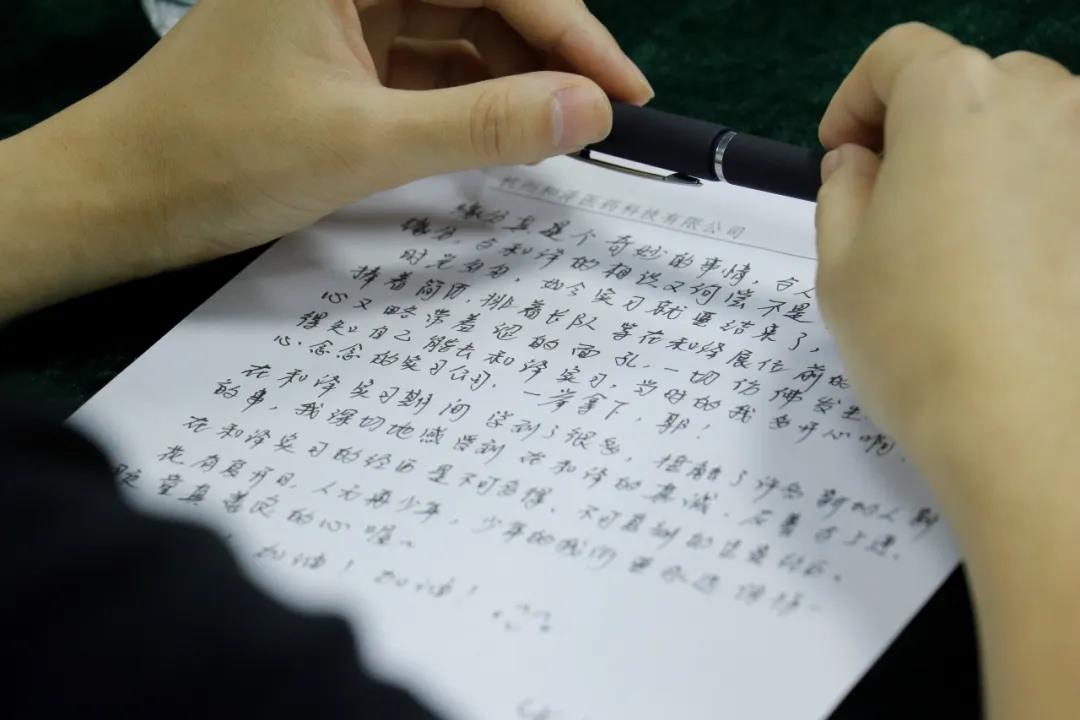 杭州和泽医药科技有限公司
缘分真是个奇妙的事情,
缘分,与和泽的相识又何尝不是
时光匆匆,如今实习就要结束了,
捧着简历,排着长队等在和泽展位前的
心又略带羞涩的面孔,一切仿佛发生
得知自己能去和泽实习,当时的我多开心啊,
心念念的实习公司,一举拿下,耶!
在和泽实习期间学到了很多,接触了许多新的人和
的事,我深切地感受到在和泽的真诚、
在和泽实习的经历是不可多得、不可复制的
花有重开日,人无再少年,少年的我们要永远
真善良的心喔~
加油!加油!